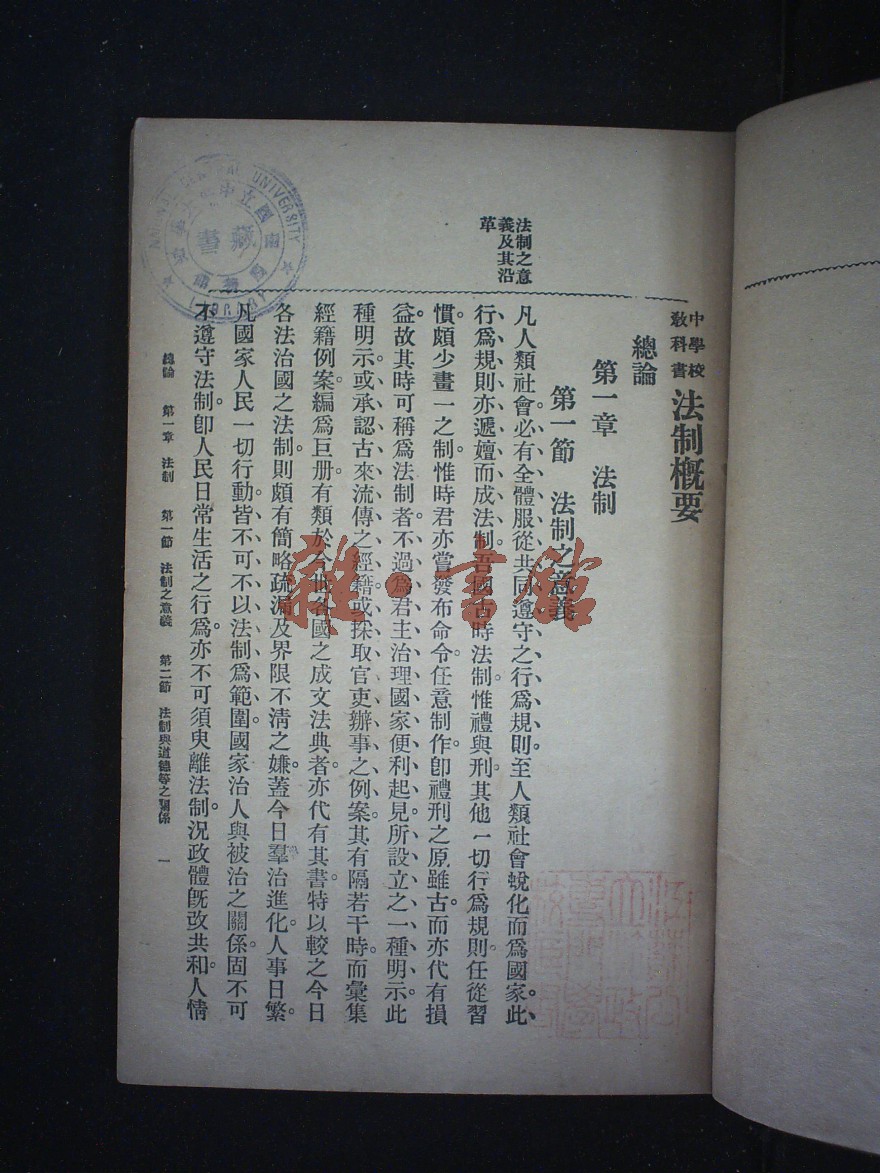 中學校
教科書
法制概要
總論
第一章　法制
第一節　法制之意義
法制之意
義及其沿
革
凡人類社會必有全體服從共同遵守之行爲規則。至人類社會蛻化而爲國家。此
行爲規則亦遞嬗而成法制。吾國古時法制。惟禮與刑。其他一切行爲規則。任從習
慣。頗少畫一之制。惟時君亦嘗發布命令。任意制作。卽禮刑之原雖古。而亦代有損
益。故其時可稱爲法制者。不過爲君主治理國家便利起見。所設立之一種明示。此
種明示。或承認古來流傳之經籍。或採取官吏辦事之例案。其有隔若干時。而彙集
經籍例案。編爲巨册。有類於今世各國之成文法典者。亦代有其書。特以較之今日
各法治國之法制。則頗有簡略疏漏及界限不清之嫌。蓋今日羣治進化。人事日繁。
凡國家人民一切行動。皆不可不以法制爲範圍。國家治人與被治之關係。固不可
不遵守法制。卽人民日常生活之行爲。亦不可須臾離法制。況政體旣改共和。人情
總論　第一章　法制　第一節　法制之意義　第二節　法制與道德等之關係　一
NATIONAL CENTRAL UNIVERSITY
LIBRARY
藏書
雜·書館